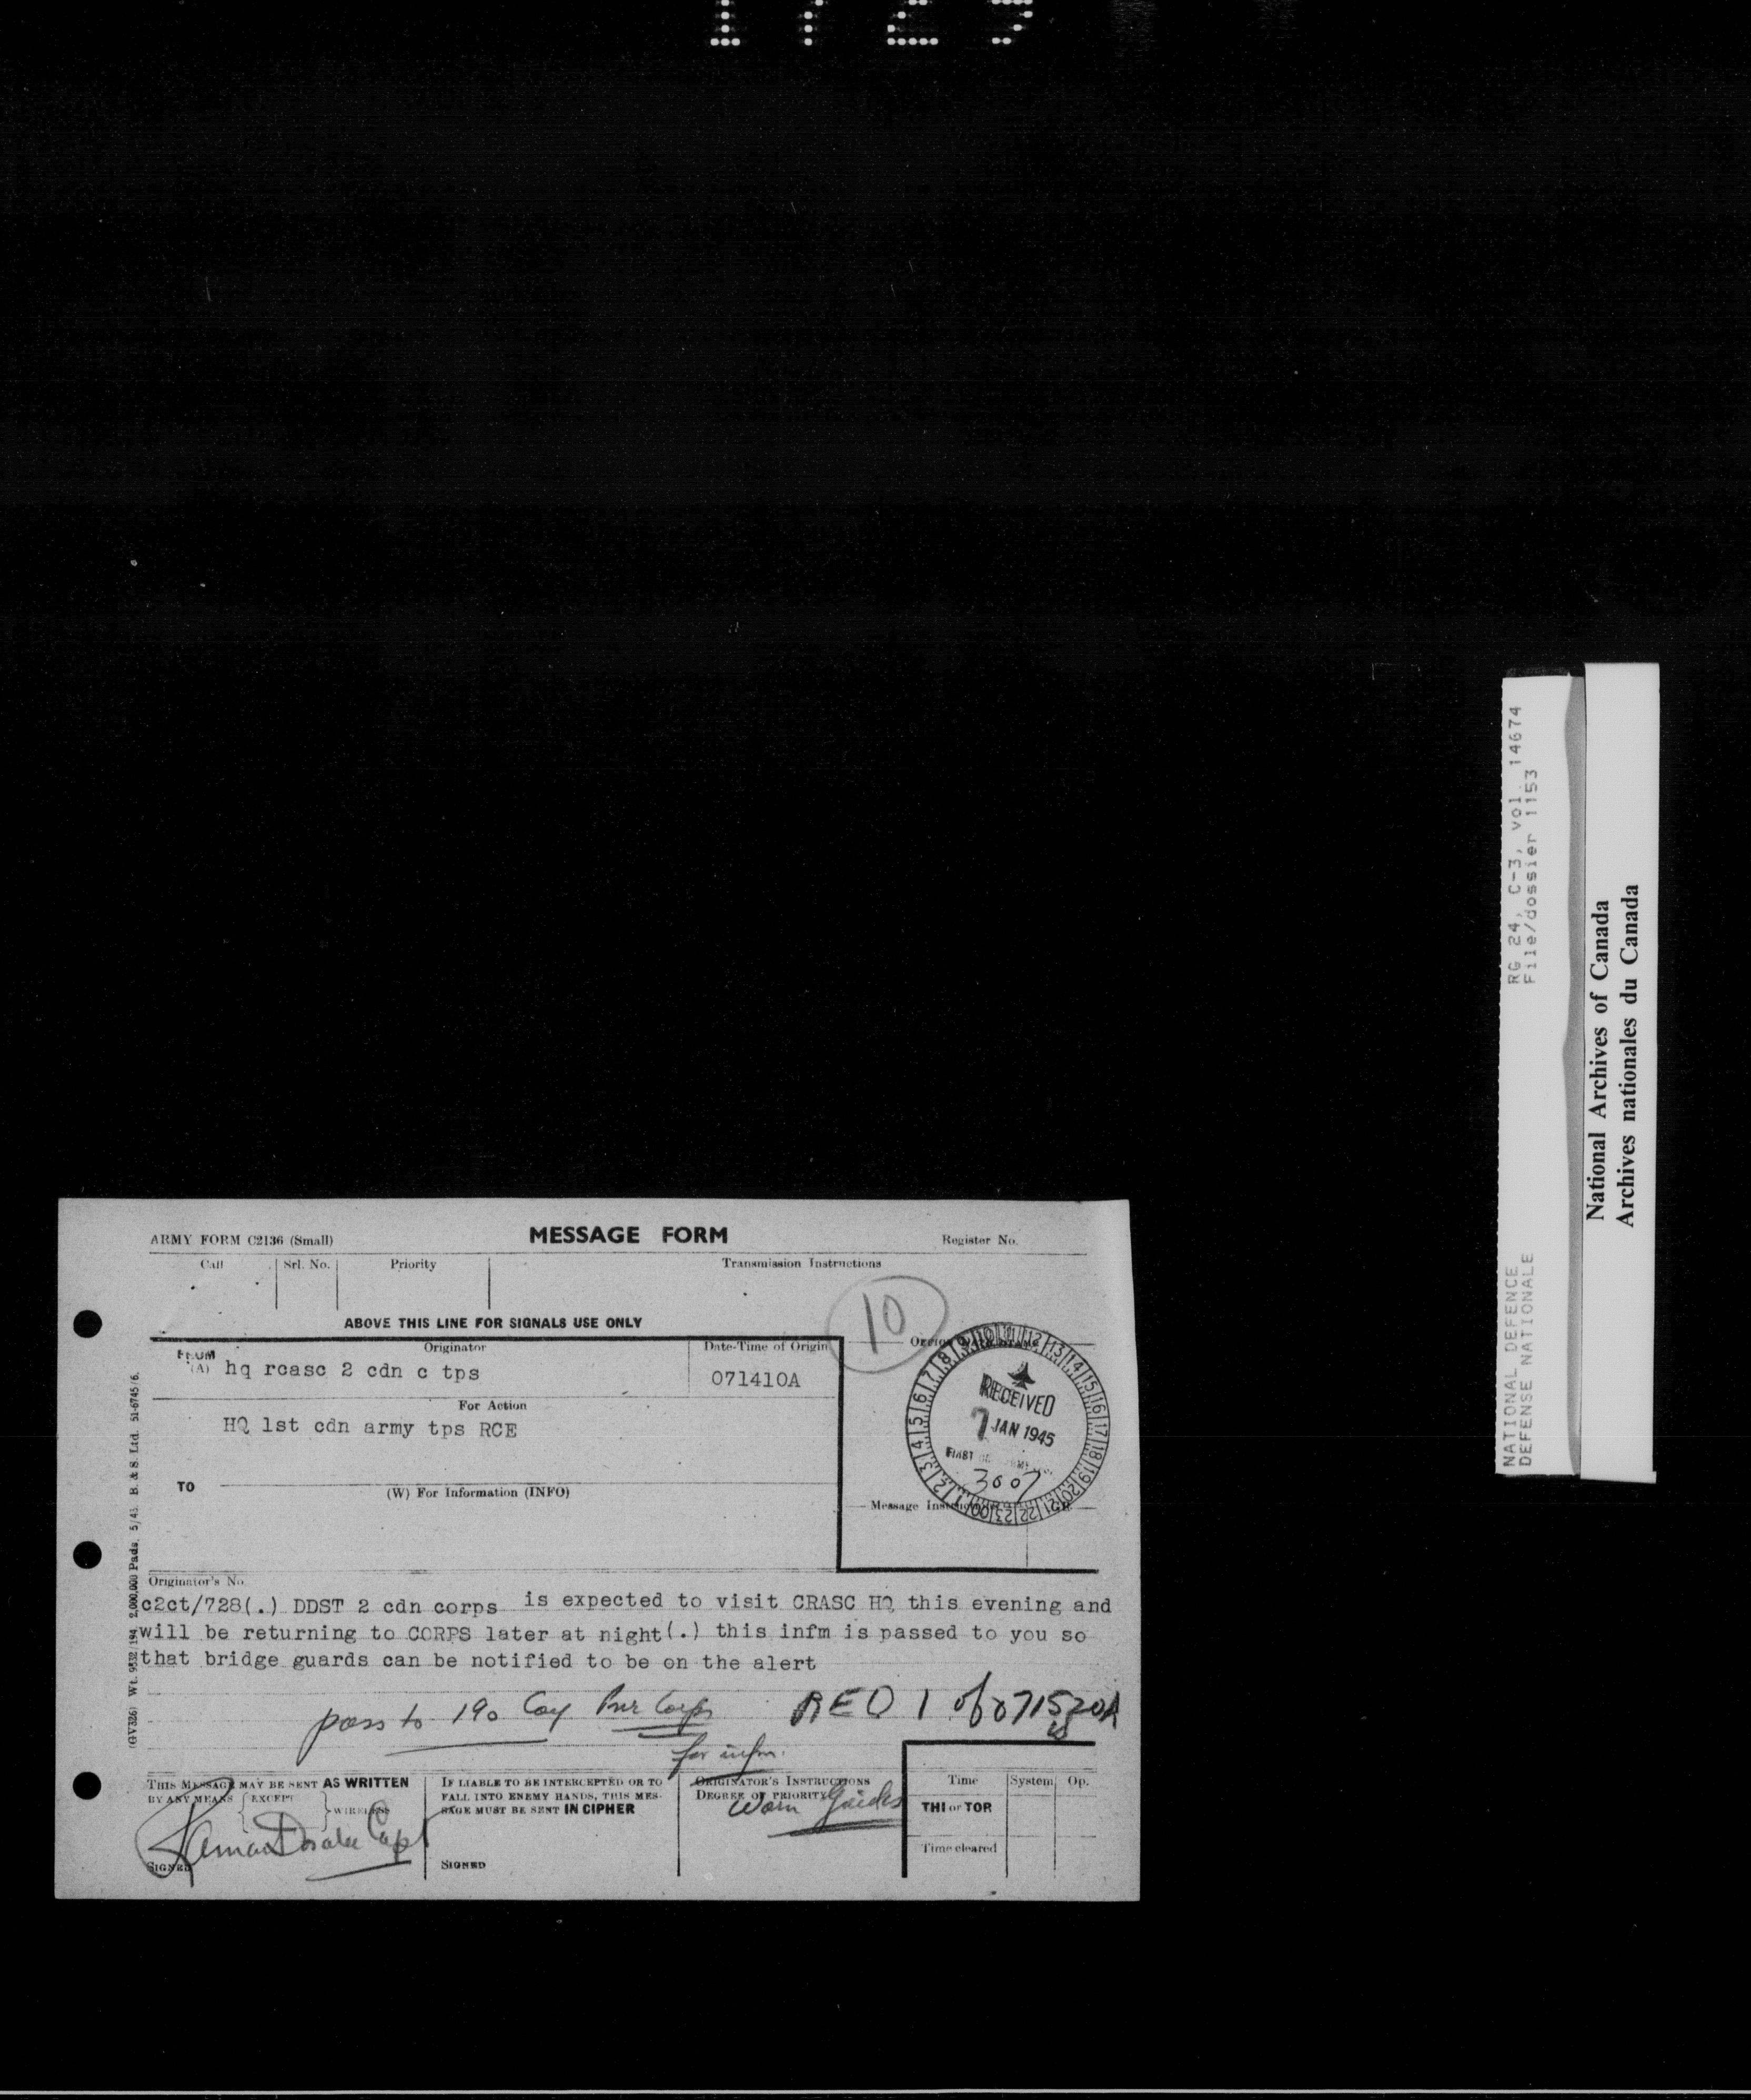 ARMY FORM C2136 (Small)
MESSAGE FORM
Register No.
Call
Srl. No.
Priority
Transmission Instructions
ABOVE THIS LINE FOR SIGNALS USE ONLY
10
FROM
(A)
Originator
Date-Time of Origin
hq rcasc 2 cdn c tps
071410A
For Action
HQ 1st cdn army tps RCE
TO
(W) For Information (INFO)
RECEIVED
7 JAN 1945
FIRST
3007
Message
Originator's No.
c2ct/728(.) DDST 2 cdn corps is expected to visit CRASC HQ this evening and
will be returning to CORPS later at night(.) this infm is passed to you so
that bridge guards can be notified to be on the alert
pass to 190 Coy Pnr Corps
for infm.
THIS MESSAGE MAY BE SENT AS WRITTEN
BY ANY MEANS { EXCEPT } WIRELESS
Capt
SIGNED
IF LIABLE TO BE INTERCEPTED OR TO
FALL INTO ENEMY HANDS, THIS MES-
SAGE MUST BE SENT IN CIPHER
SIGNED
ORIGINATOR'S INSTRUCTIONS
DEGREE OF PRIORITY
Warn
Time
System
Op.
THI or TOR
Time cleared
(GV326) Wt. 9532/194 2,000,000 Pads. 5/43. B. & S. Ltd. 51-6745/6.
RG 24, C-3, vol. 14674
File/dossier 1153
NATIONAL DEFENCE
DEFENSE NATIONALE
National Archives of Canada
Archives nationales du Canada